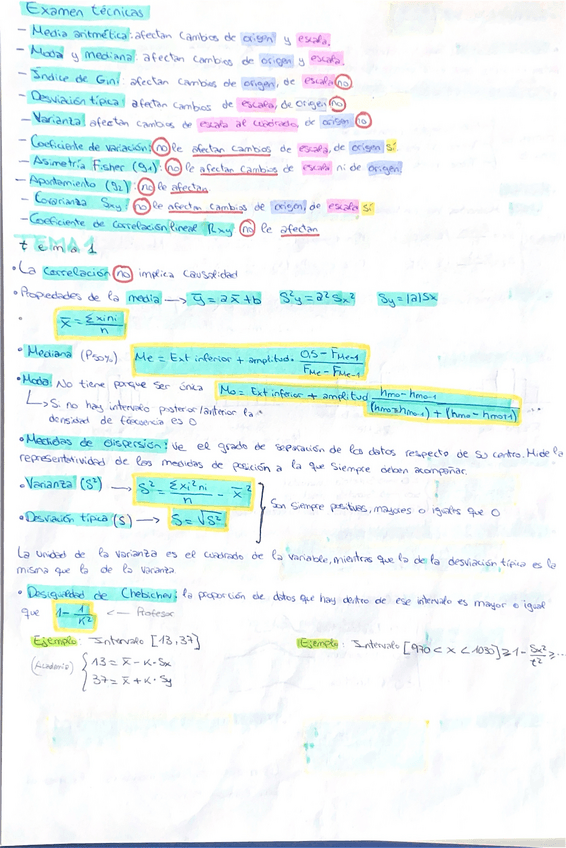 Examen técnicas
- Media aritmética: afectan cambios de origen y escala.
- Moda y mediana: afectan cambios de origen y escala.
- Índice de Gini: afectan cambios de origen, de escala no
- Desviación típica: afectan cambios de escala, de origen no
- Varianza: afectan cambios de escala al cuadrado, de origen no
- Coeficiente de variación: no le afectan cambios de escala, de origen sí.
- Asimetría Fisher (g1): no le afectan cambios de escala ni de origen.
- Apuntamiento (g2): no le afectan
- Covarianza Sxy no le afectan cambios de origen, de escala sí
- Coeficiente de correlación lineal Rxy no le afectan
TEMA 1
tema 1
• La correlación no implica causalidad
• Propiedades de la media → ȳ = a x̄ + b S²y = a² Sx² Sy = |a| Sx
• x̄ = Σxini / n
• Mediana (P50%) Me = Ext inferior + amplitud · (0,5 - FMe-1) / (FMe - FMe-1)
• Moda No tiene porque ser única Mo = Ext inferior + amplitud (hmo - hmo-1) / ((hmo - hmo-1) + (hmo - hmo+1)) ...
↳ Si no hay intervalo posterior/anterior la
densidad de frecuencia es 0
• Medidas de dispersión: Ve el grado de separación de los datos respecto de su centro. Mide la
representatividad de las medidas de posición a la que siempre deben acompañar.
• Varianza (S²) → S² = Σxi²ni / n - x̄²
Son siempre positivas, mayores o iguales que 0
• Desviación típica (S) → S = √S²
La unidad de la varianza es el cuadrado de la variable, mientras que la de la desviación típica es la
misma que la de la varianza.
• Desigualdad de Chebichev: la proporción de datos que hay dentro de ese intervalo es mayor o igual
que 1 - 1/K² ← Profesor
Ejemplo: Intervalo [13,37] Ejemplo: Intervalo [970 < x < 1030] ≥ 1 - Sx²/t² ≥ ...
(Academia) { 13 = x̄ - K · Sx
37 = x̄ + K · Sy